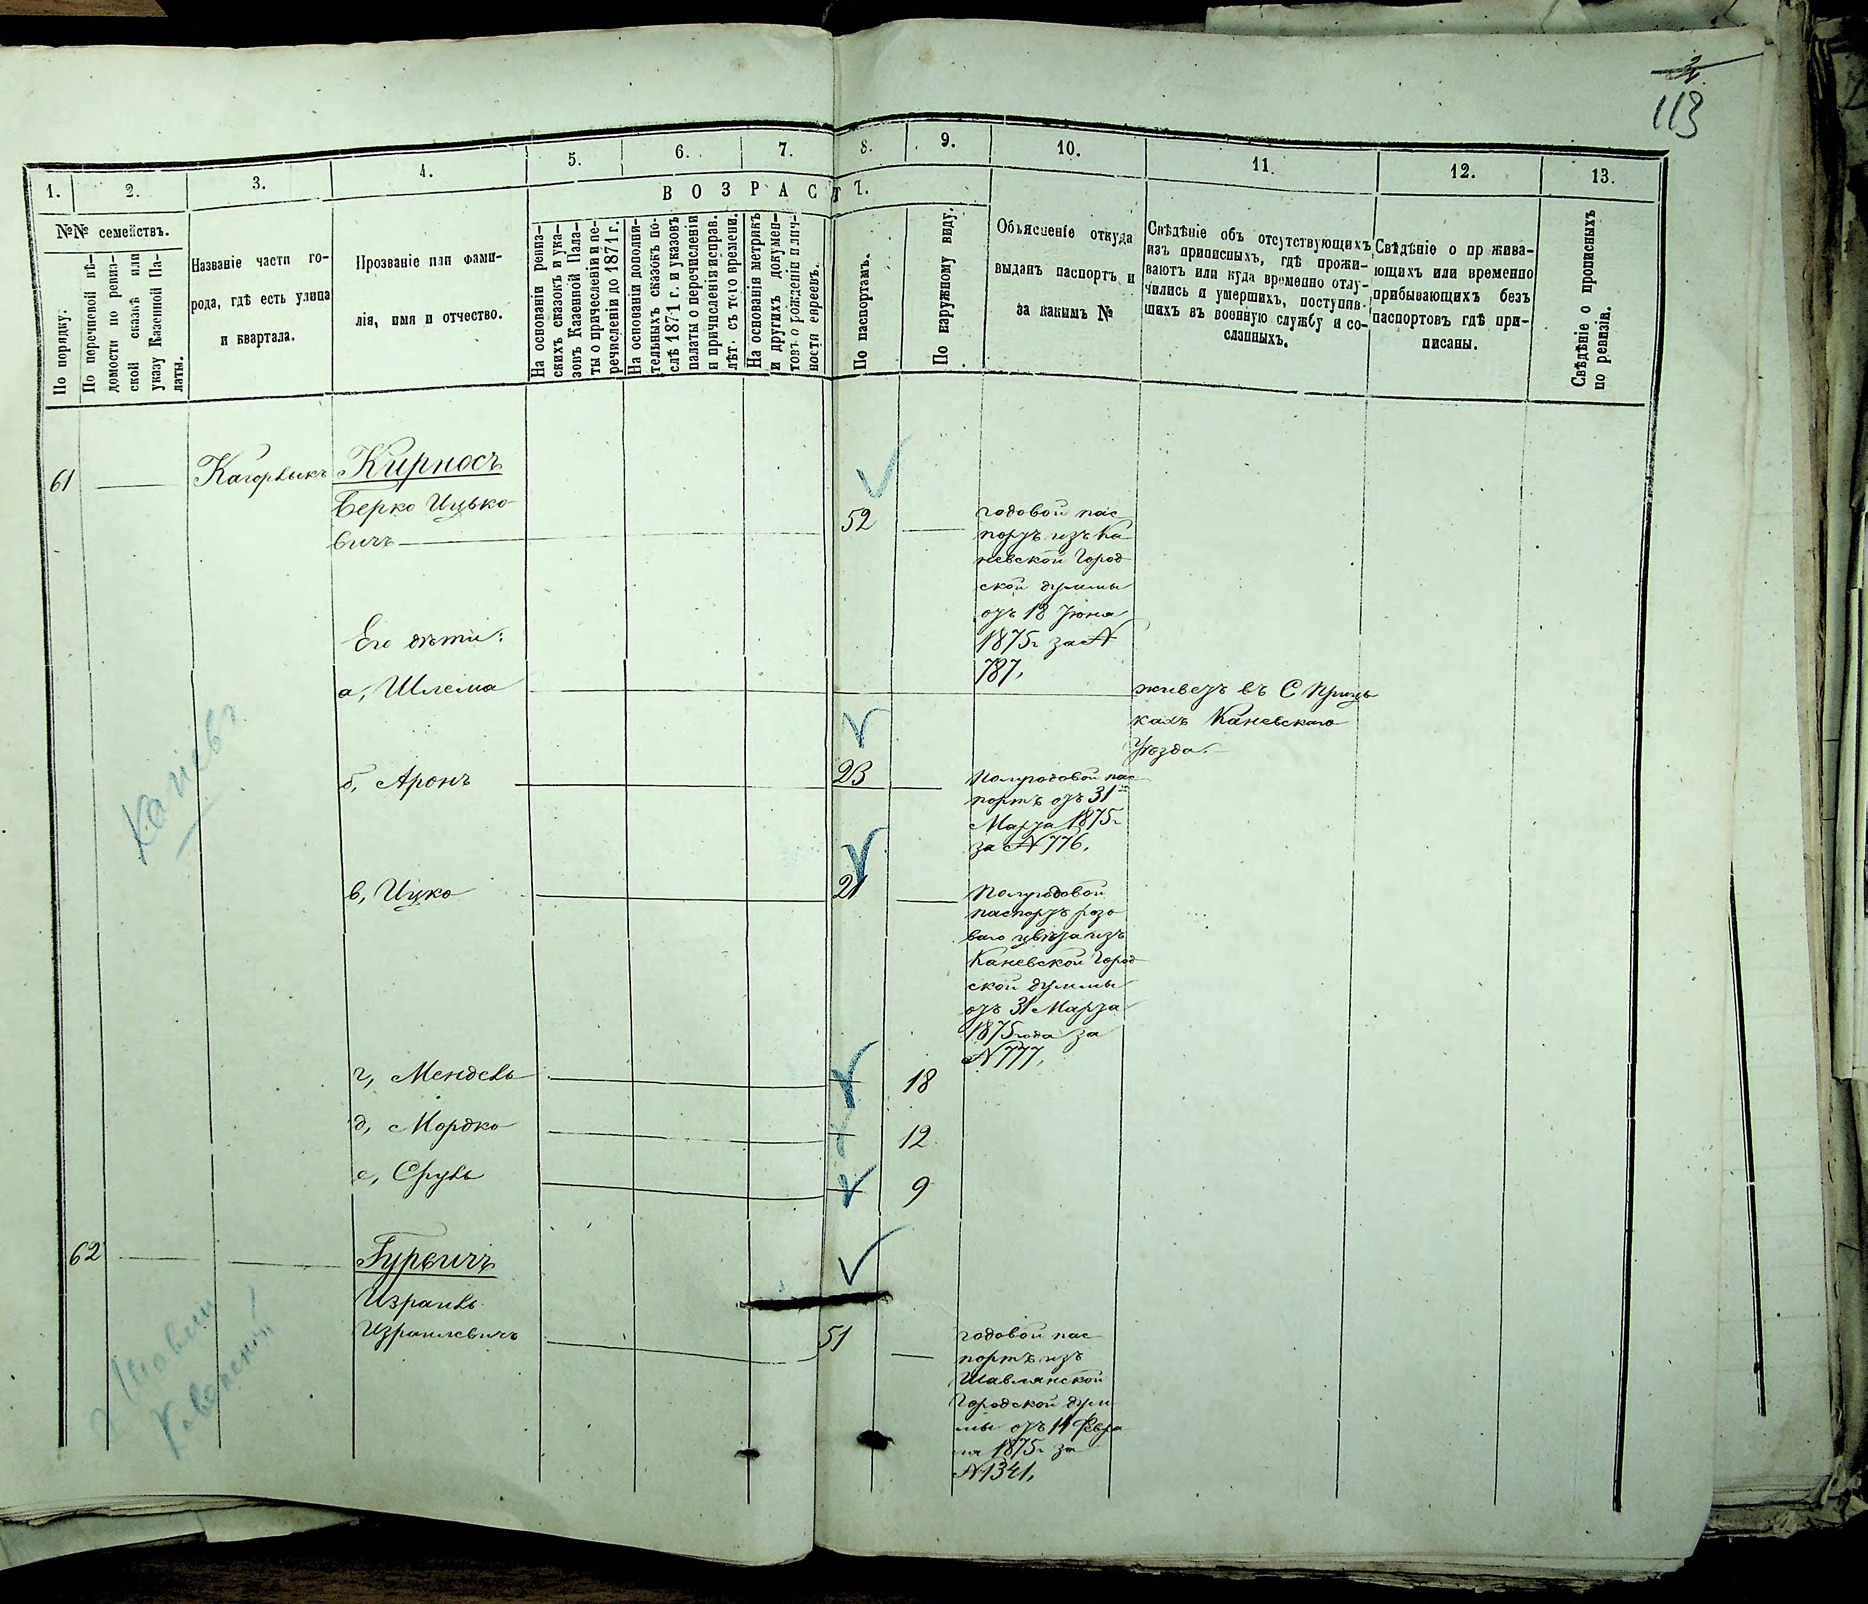 113
1. 2. 3. 4. 5. 6. 7. 8. 9. 10. 11. 12. 13.
В О З Р А С Т Ъ.
№№ семействъ.
По порядку.
По перечневой вѣ-
домости по ревиз-
ской сказкѣ или
указу Казенной Па-
латы.
Названіе части го-
рода, гдѣ есть улица
и квартала.
Прозваніе или фами-
лія, имя и отчество.
На основаніи ревиз-
скихъ сказокъ и ука-
зовъ Казенной Пала-
ты о причисленіи и пе-
речисленіи до 1871 г.
На основаніи дополни-
тельныхъ сказокъ по-
слѣ 1871 г. и указовъ
палаты о перечисленіи
и причисленіи исправ.
лѣт. съ того времени.
На основаніи метрикъ
и другихъ докумен-
товъ о рожденіи и лич-
ности евреевъ.
По паспортамъ.
По наружному виду.
Объясненіе откуда
выданъ паспортъ и
за какимъ №
Свѣдѣніе объ отсутствующихъ
изъ приписныхъ, гдѣ прожи-
ваютъ или куда временно отлу-
чились и умершихъ, поступив-
шихъ въ военную службу и со-
сланныхъ.
Свѣдѣніе о пр жива-
ющихъ или временно
прибывающихъ безъ
паспортовъ гдѣ при-
писаны.
Свѣдѣніе о прописныхъ
по ревизіи.
61 Кагорлыкъ Кирносъ
Берко Ицько-
вичъ 52
годовой пас
портъ изъ Ка
невской Город
ской думмы
отъ 18 Іюна
1875 г за №
787,
Его дѣти:
а, Шлема
живетъ въ С Приць
кахъ Каневскаго
Уѣзда.
Каневъ
б, Аронъ 23
Полугодовой пас
портъ отъ 31го
Марта 1875 г
за № 776,
в, Ицко 21
Полугодовой
паспортъ розо
ваго цвѣта изъ
Каневской Город
ской думмы
отъ 31 Марта
1875 года за
№ 777,
г, Мендель 18
д, Мордко 12
е, Сруль 9
62 Гурвичъ
Израиль
Израилевичъ 51
годовой пас
портъ изъ
Шавлянской
Городской дум
мы отъ 14 Февра
ля 1875 г за
№ 1341,